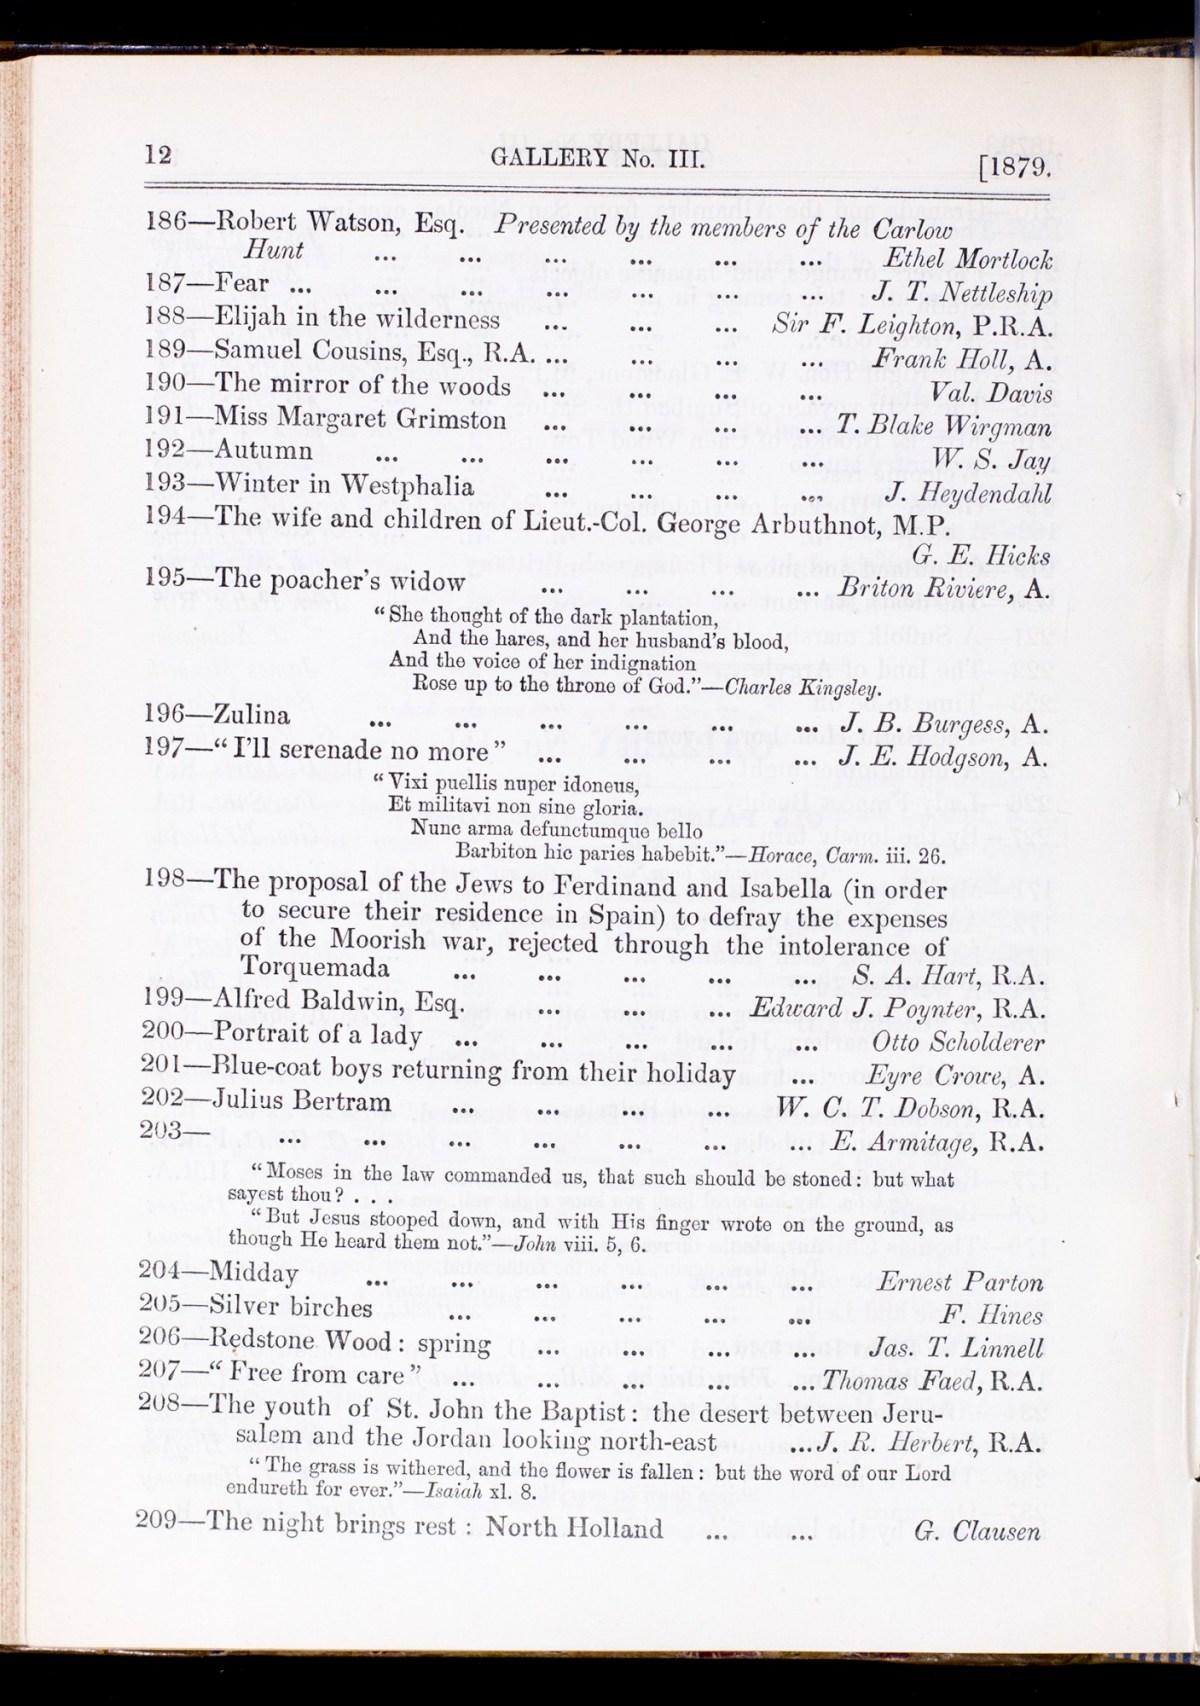 12 GALLERY No. III. [1879.
186—Robert Watson, Esq. Presented by the members of the Carlow
Hunt ... ... ... ... ... ... Ethel Mortlock
187—Fear ... ... ... ... ... ... ... J. T. Nettleship
188—Elijah in the wilderness ... ... ... Sir F. Leighton, P.R.A.
189—Samuel Cousins, Esq., R.A. ... ... ... ... Frank Holl, A.
190—The mirror of the woods ... ... ... ... Val. Davis
191—Miss Margaret Grimston ... ... ... ... T. Blake Wirgman
192—Autumn ... ... ... ... ... ... W. S. Jay
193—Winter in Westphalia ... ... ... ... J. Heydendahl
194—The wife and children of Lieut.-Col. George Arbuthnot, M.P.
G. E. Hicks
195—The poacher's widow ... ... ... ... Briton Riviere, A.
"She thought of the dark plantation,
And the hares, and her husband's blood,
And the voice of her indignation
Rose up to the throne of God."—Charles Kingsley.
196—Zulina ... ... ... ... ... ... J. B. Burgess, A.
197—"I'll serenade no more" ... ... ... ... J. E. Hodgson, A.
"Vixi puellis nuper idoneus,
Et militavi non sine gloria.
Nunc arma defunctumque bello
Barbiton hic paries habebit."—Horace, Carm. iii. 26.
198—The proposal of the Jews to Ferdinand and Isabella (in order
to secure their residence in Spain) to defray the expenses
of the Moorish war, rejected through the intolerance of
Torquemada ... ... ... ... ... S. A. Hart, R.A.
199—Alfred Baldwin, Esq. ... ... ... Edward J. Poynter, R.A.
200—Portrait of a lady ... ... ... ... ... Otto Scholderer
201—Blue-coat boys returning from their holiday ... Eyre Crowe, A.
202—Julius Bertram ... ... ... ... W. C. T. Dobson, R.A.
203— ... ... ... ... ... ... ... E. Armitage, R.A.
"Moses in the law commanded us, that such should be stoned: but what
sayest thou? . . .
"But Jesus stooped down, and with His finger wrote on the ground, as
though He heard them not."—John viii. 5, 6.
204—Midday ... ... ... ... ... ... Ernest Parton
205—Silver birches ... ... ... ... ... F. Hines
206—Redstone Wood: spring ... ... ... ... Jas. T. Linnell
207—"Free from care" ... ... ... ... ... Thomas Faed, R.A.
208—The youth of St. John the Baptist: the desert between Jeru-
salem and the Jordan looking north-east ... J. R. Herbert, R.A.
"The grass is withered, and the flower is fallen: but the word of our Lord
endureth for ever."—Isaiah xl. 8.
209—The night brings rest: North Holland ... ... G. Clausen